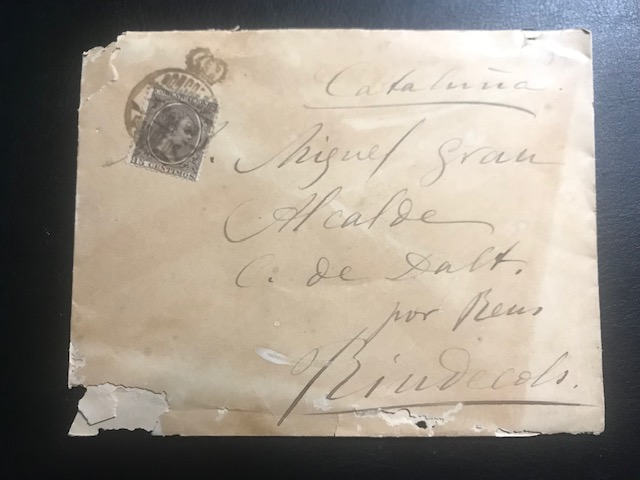 Cataluña.
Miguel Grau
Alcalde
C. de Dalt.
por Reus
Riudecols.
15 CENTIMOS